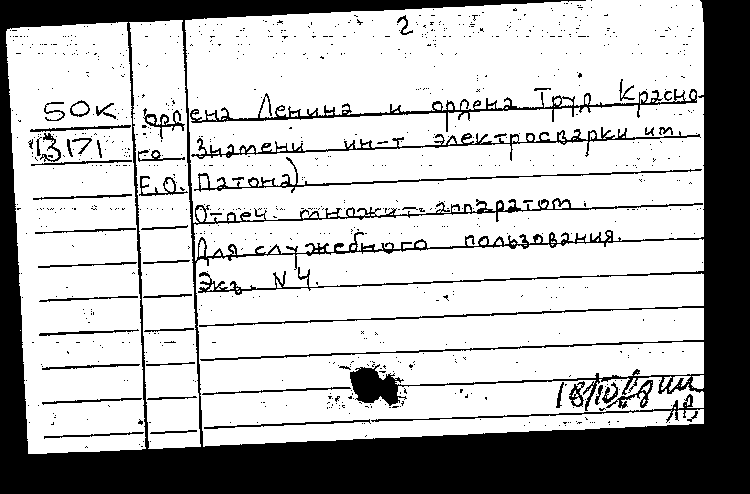 2
50К орд ена Ленина и ордена Труд. Красно-
13171 го Знамени ин-т электросварки им.
Е.О. Патона).
Отпеч. множит. аппаратом.
Для служебного пользования.
Экз. N 4.